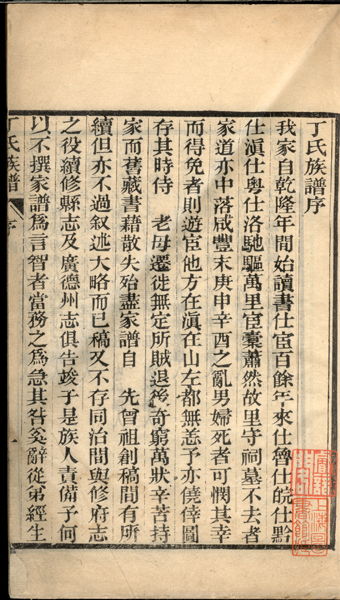 丁氏族譜序
我家自乾隆年間始讀書仕宦百餘年來仕魯仕皖仕黔
仕滇仕粵仕洛馳驅萬里宦橐蕭然故里守祠墓不去者
家道亦中落咸豐末庚申辛酉之亂男婦死者可憫其幸
而得免者則遊宦他方在滇在山左都無恙予亦僥倖圖
存其時侍 老母遷徙無定所賊退後奇窮萬狀辛苦持
家而舊藏書籍散失殆盡家譜自 先曾祖創稿間有所
續但亦不過叙述大略而已稿又不存同治間與修府志
之役續修縣志及廣德州志俱告竣于是族人責備予何
以不撰家譜爲言智者當務之爲急其咎奚辭從弟經生
丁氏族譜 序 一